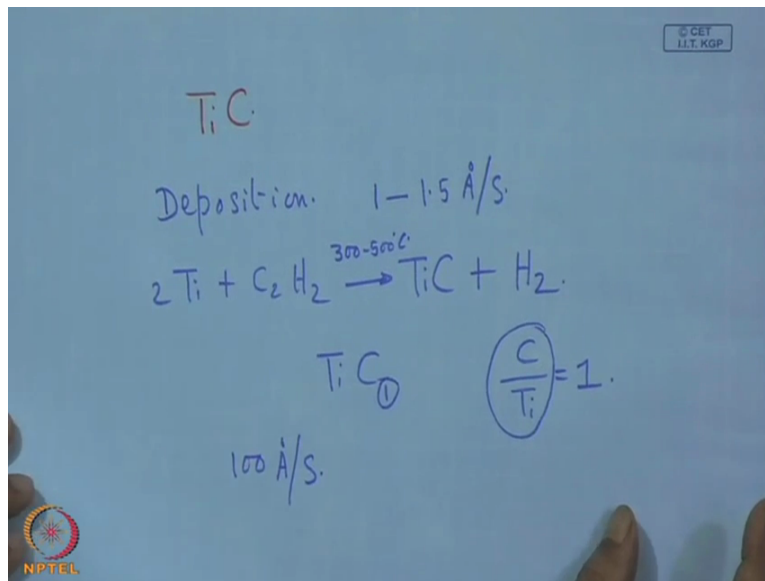 © CET
I.I.T. KGP
TiC.
Deposition. 1 – 1.5 Å/S.
2 Ti + C₂ H₂ 300-500°C. → TiC + H₂.
Ti C① C/Ti = 1.
100 Å/S.
NPTEL